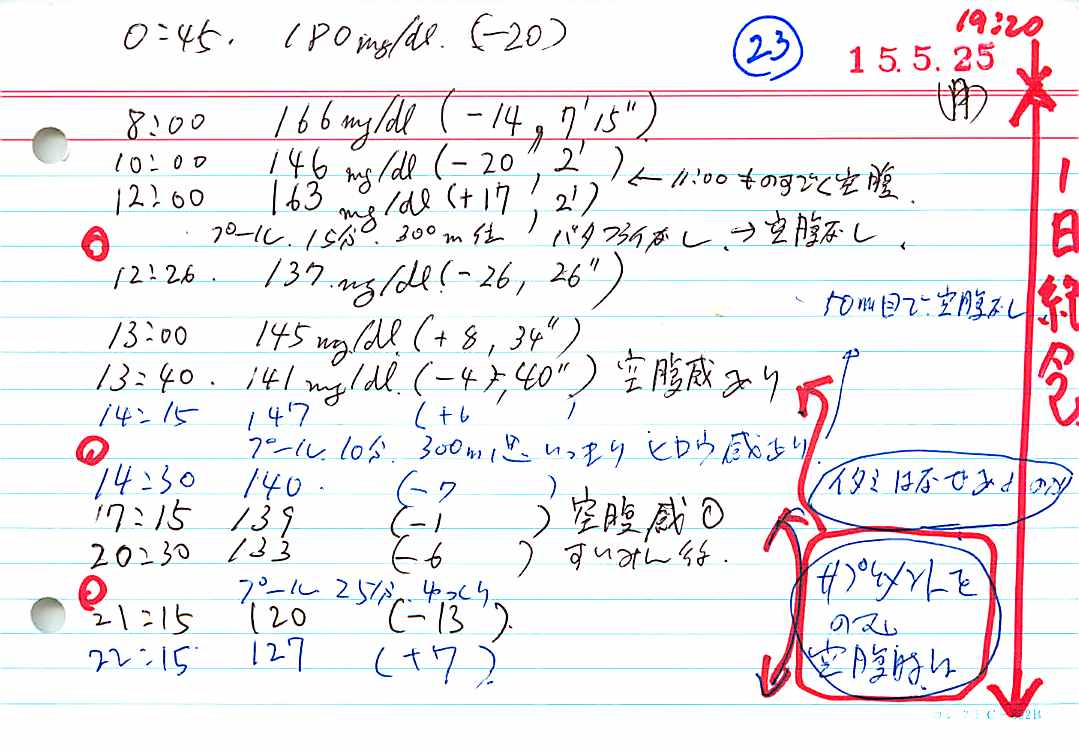 0:45. 180mg/dl. (-20)
23
19:20
15.5.25
(月)
8:00 166mg/dl (-14, 7'15")
10:00 146mg/dl (-20, 2')
12:00 163mg/dl (+17, 2') ← 11:00 ものすごく空腹.
プール. 15分. 300m位 バタフライなし. → 空腹なし.
12:26. 137.mg/dl (-26, 26")
50m目で空腹なし
13:00 145mg/dl. (+8, 34")
13:40. 141mg/dl. (-4, 40") 空腹感あり
14:15 147 (+6 )
プール. 10分. 300m いっきり ヒロウ感あり.
14:30 140. (-7 )
イタミはなぜ
17:15 139 (-1 ) 空腹感
20:30 133 (-6 ) すいみん後.
プール 25分. ゆっくり
21:15 120 (-13).
22:15 127 (+7).
サプリメントを
のむ
空腹時は
1日絶食